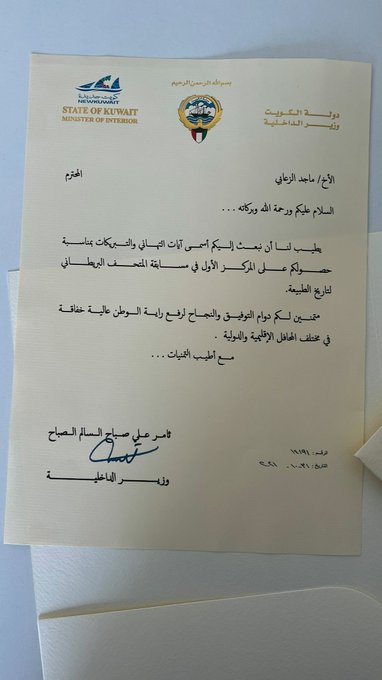 بسم الله الرحمن الرحيم
كويت جديدة
NEWKUWAIT
STATE OF KUWAIT
MINISTER OF INTERIOR
دولة الكويت
وزير الداخلية
الأخ/ ماجد الزعابي المحترم
السلام عليكم ورحمة الله وبركاته ...
يطيب لنا أن نبعث إليكم أسمى آيات التهاني والتبريكات بمناسبة
حصولكم على المركز الأول في مسابقة المتحف البريطاني
لتاريخ الطبيعة.
متمنين لكم دوام التوفيق والنجاح لرفع راية الوطن عالية خفاقة
في مختلف المحافل الإقليمية والدولية .
مع أطيب التمنيات ...
ثامر علي صباح السالم الصباح
وزير الداخلية
الرقم:
التاريخ: